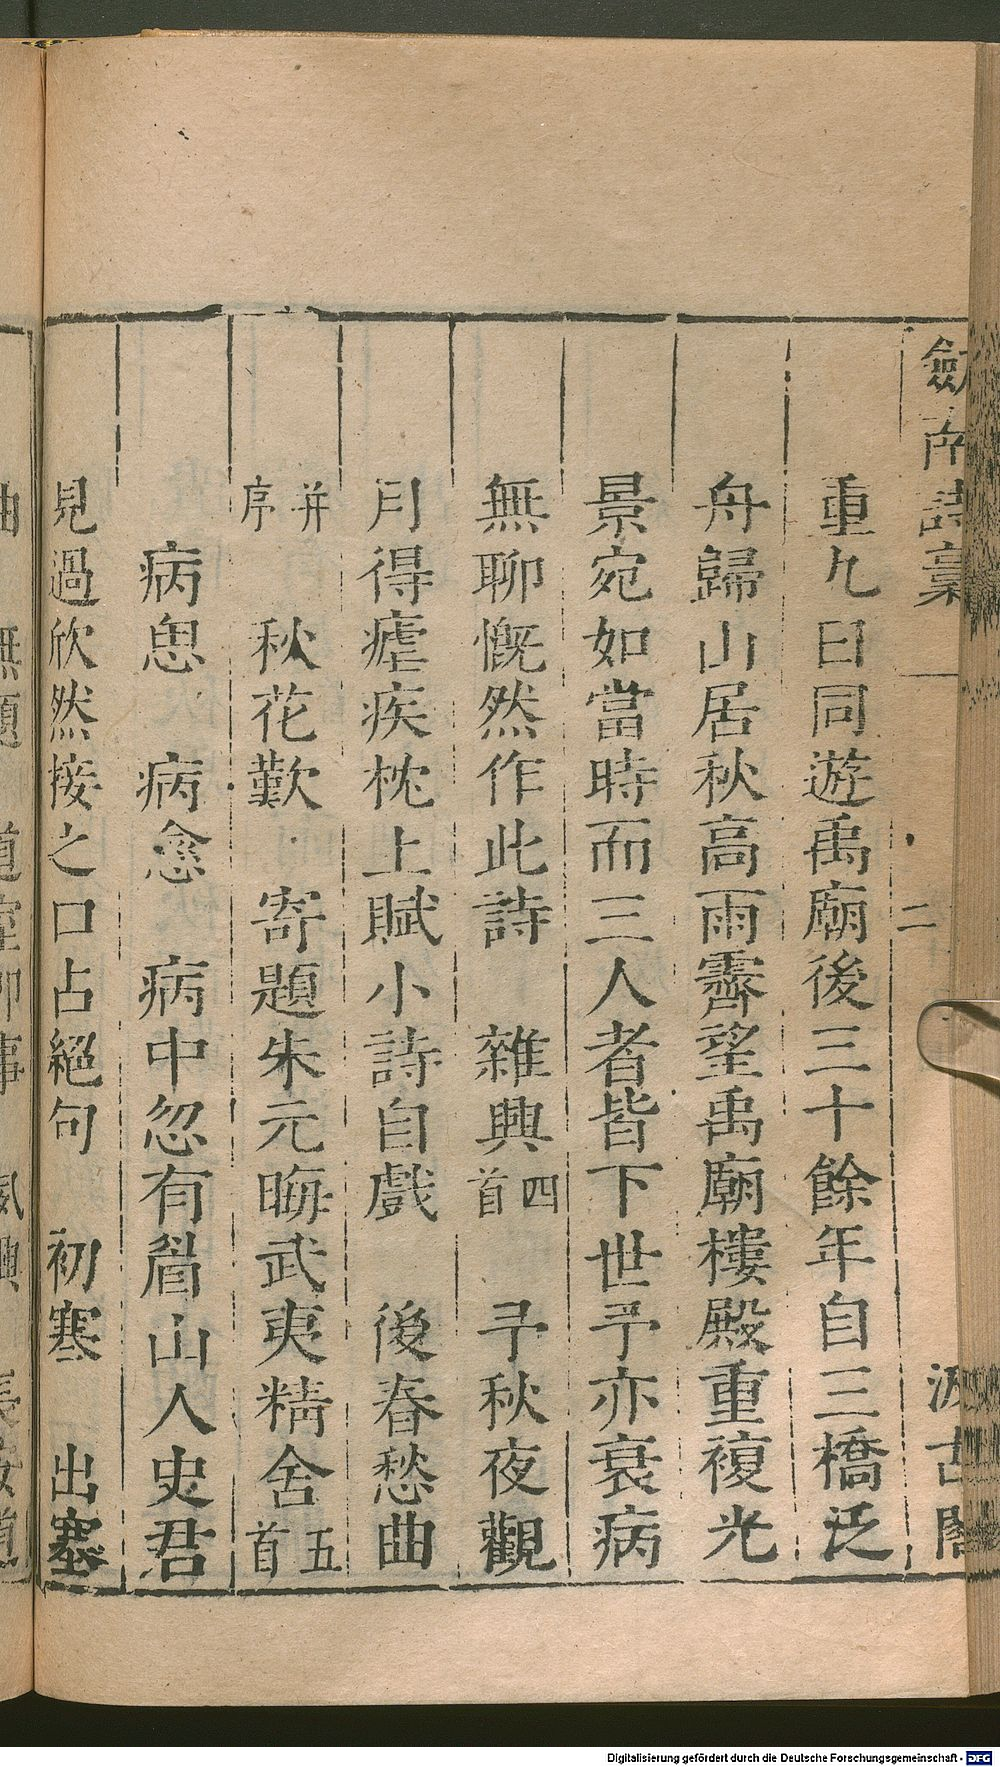 劒南詩稾 二 汲古閣
重九日同遊禹廟後三十餘年自三橋泛
舟歸山居秋高雨霽望禹廟樓殿重複光
景宛如當時而三人者皆下世予亦衰病
無聊慨然作此詩 雜興四首 予秋夜觀
月得瘧疾枕上賦小詩自戲 後春愁曲
并序 秋花歎 寄題朱元晦武夷精舍五首
病思 病愈 病中忽有眉山人史君
見過欣然接之口占絕句 初寒 出塞
Digitalisierung gefördert durch die Deutsche Forschungsgemeinschaft - DFG